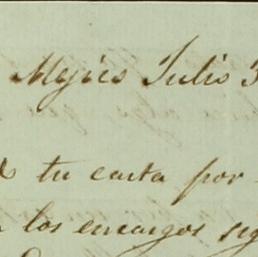 Mejico Julio 3
tu carta por
los encargos